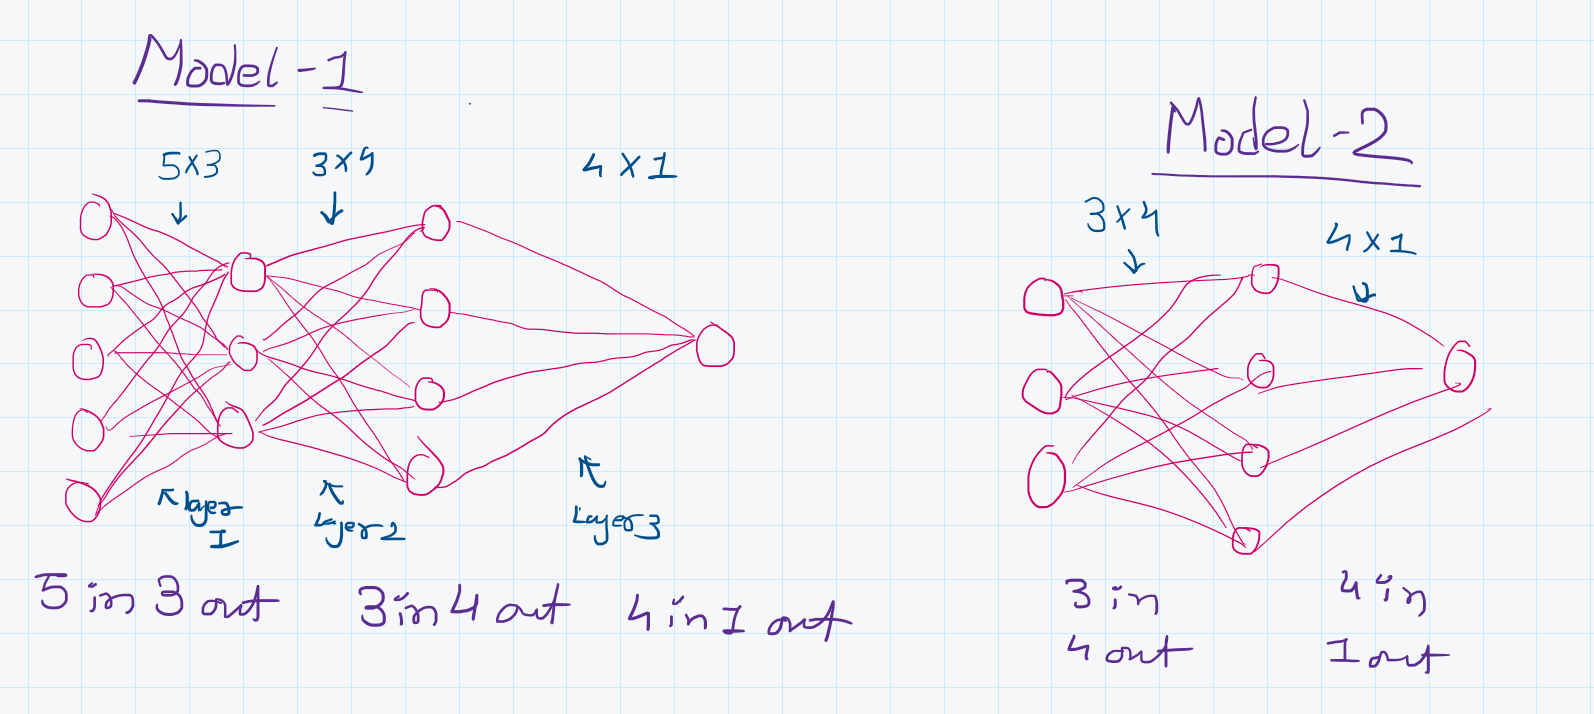 Model-1
5x3
3x4
4x1
layer
I
Layer2
Layer3
5 in 3 out
3 in 4 out
4 in 1 out
Model-2
3x4
4x1
3 in
4 out
4 in
1 out